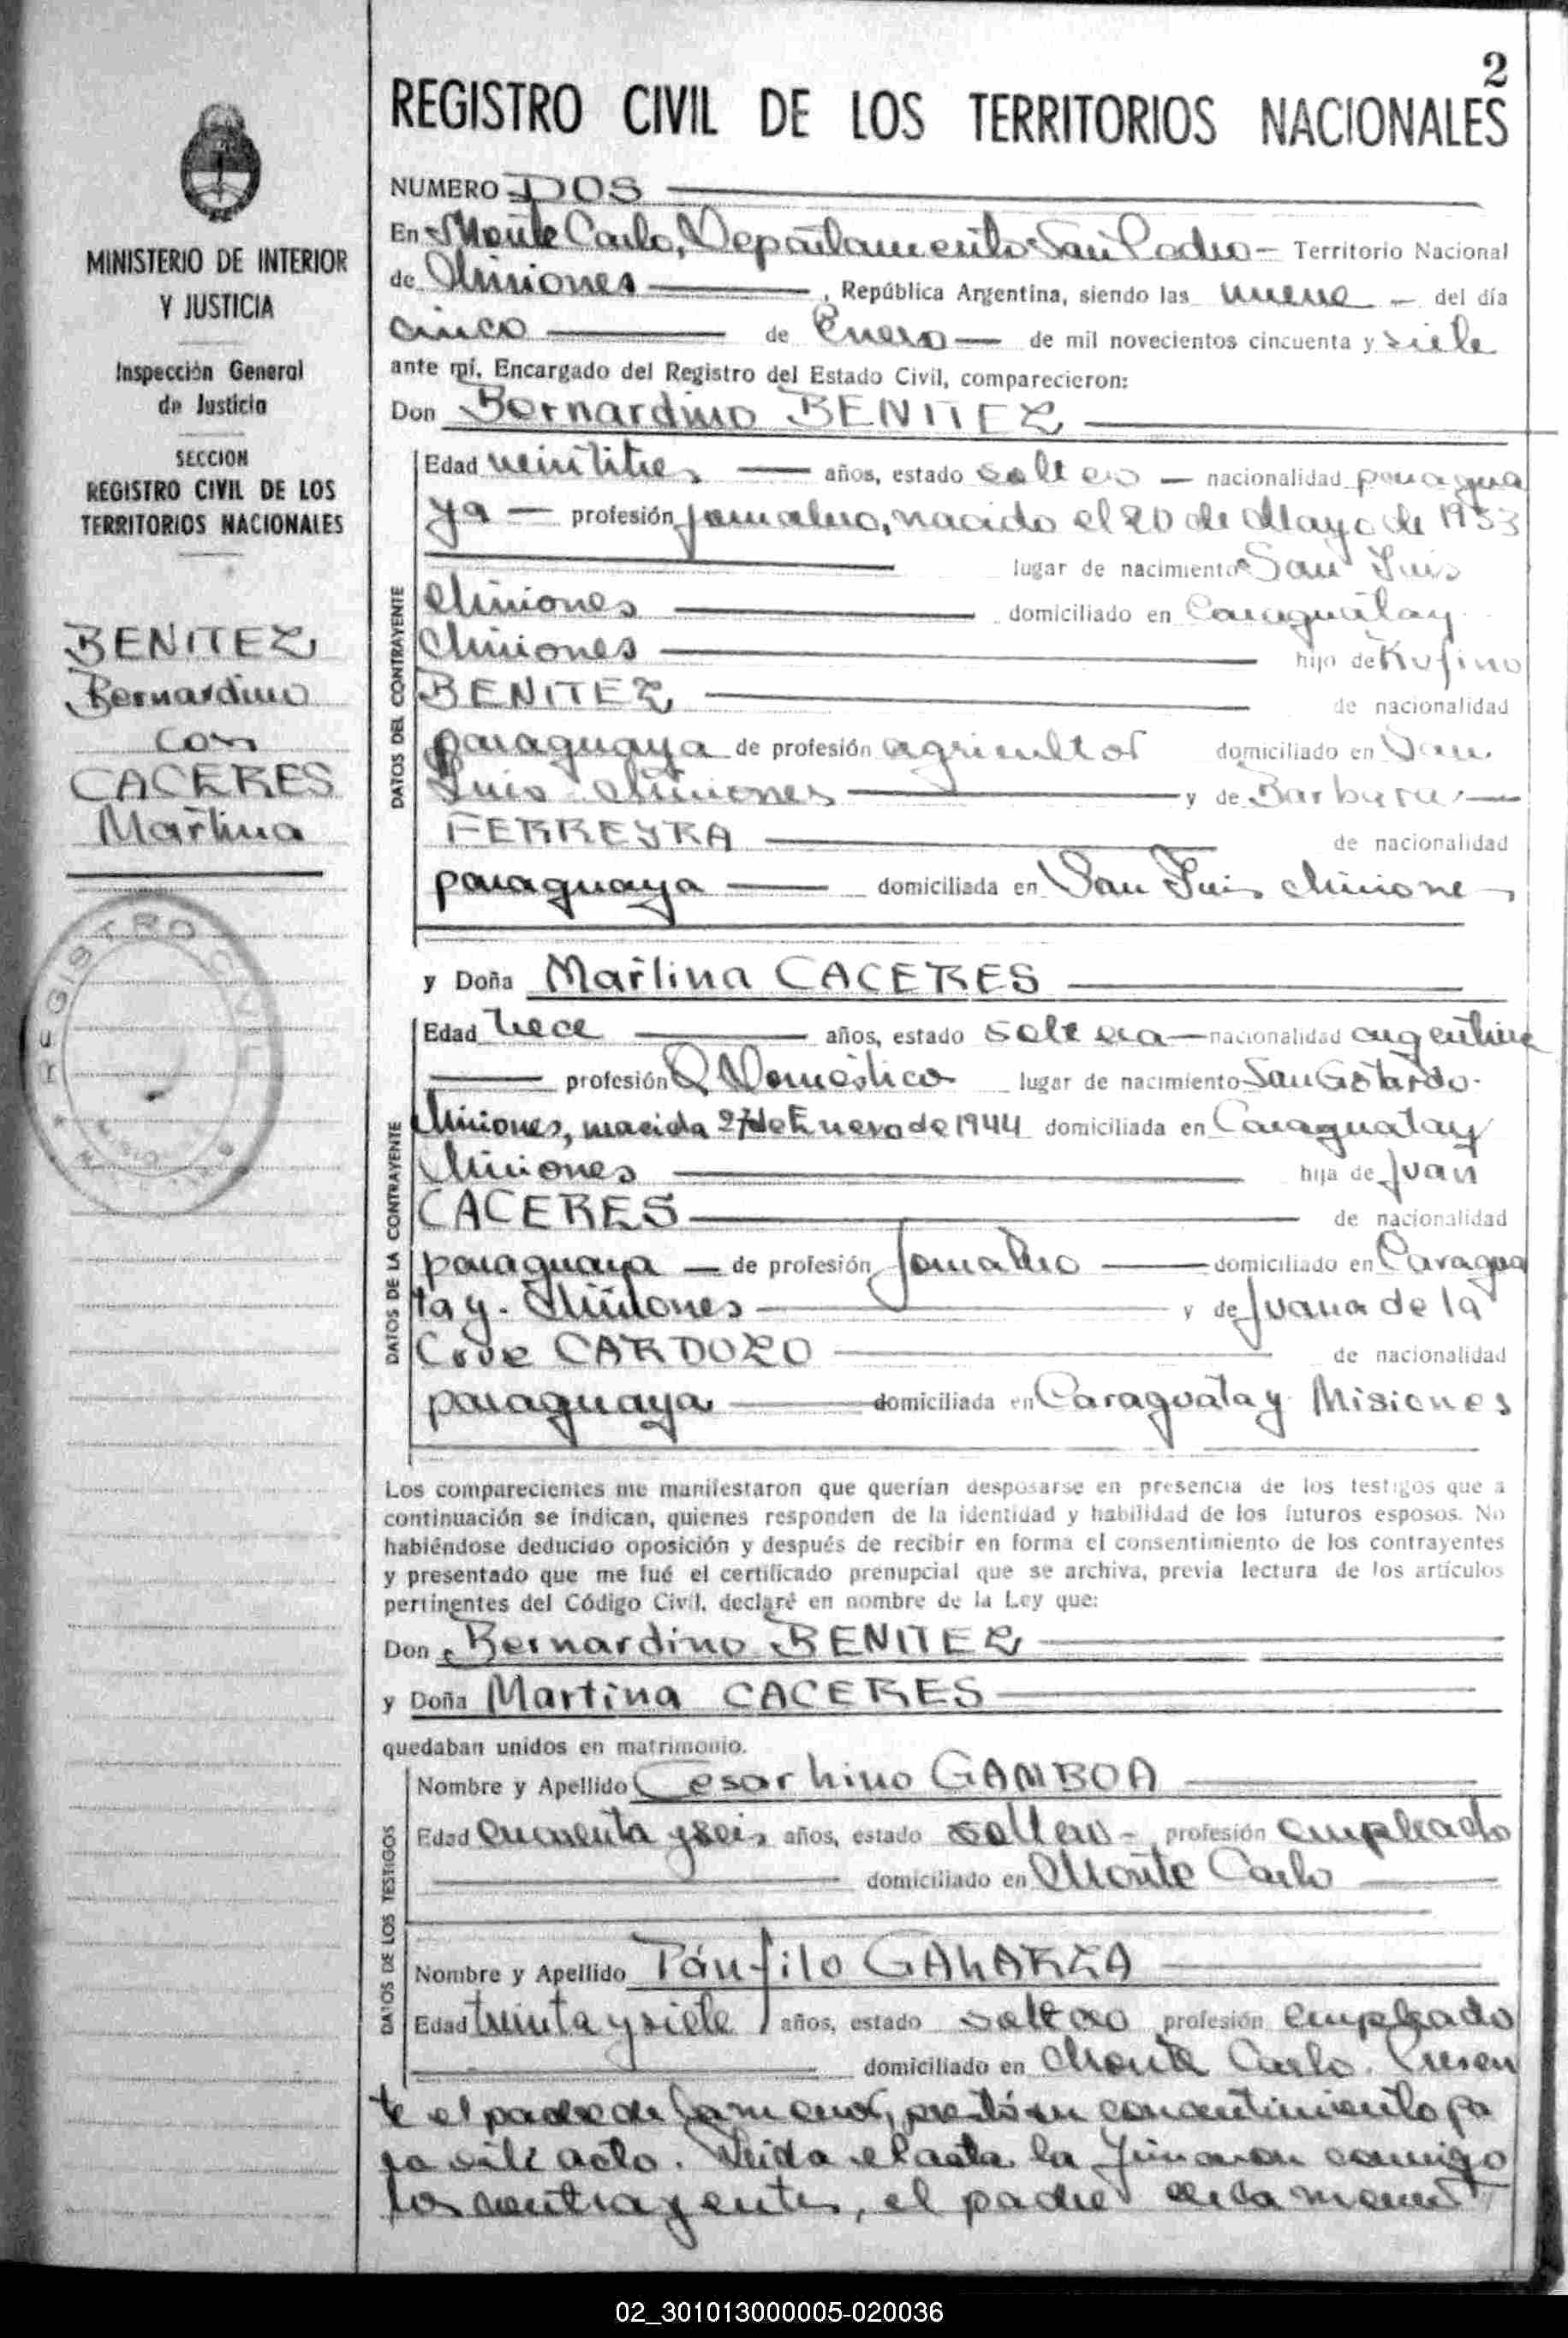 2
REGISTRO CIVIL DE LOS TERRITORIOS NACIONALES
MINISTERIO DE INTERIOR
Y JUSTICIA
Inspección General
de Justicia
SECCION
REGISTRO CIVIL DE LOS
TERRITORIOS NACIONALES
BENITEZ
Bernardino
con
CACERES
Martina
REGISTRO CIVIL
NUMERO DOS
En Monte Carlo, Departamento San Pedro - Territorio Nacional
de Misiones , República Argentina, siendo las nueve - del día
cinco de Enero de mil novecientos cincuenta y siete
ante mí, Encargado del Registro del Estado Civil, comparecieron:
Don Bernardino BENITEZ
DATOS DEL CONTRAYENTE
Edad veintitres años, estado soltero - nacionalidad paragua
ya - profesión jornalero, nacido el 20 de Mayo de 1933
lugar de nacimiento San Luis
Misiones domiciliado en Caraguatay
Misiones hijo de Rufino
BENITEZ de nacionalidad
paraguaya de profesión agricultor domiciliado en San
Luis Misiones y de Barbara
FERREYRA de nacionalidad
paraguaya domiciliada en San Luis Misiones
y Doña Martina CACERES
DATOS DE LA CONTRAYENTE
Edad trece años, estado soltera - nacionalidad argentina
profesión Q Domestico lugar de nacimiento San Gotardo-
Misiones, nacida 27 de Enero de 1944 domiciliada en Caraguatay
Misiones hija de Juan
CACERES de nacionalidad
paraguaya de profesión Jornalero domiciliado en Caragua
tay. Misiones y de Juana de la
Cruz CARDOZO de nacionalidad
paraguaya domiciliada en Caraguatay Misiones
Los comparecientes me manifestaron que querían desposarse en presencia de los testigos que a
continuación se indican, quienes responden de la identidad y habilidad de los futuros esposos. No
habiéndose deducido oposición y después de recibir en forma el consentimiento de los contrayentes
y presentado que me fué el certificado prenupcial que se archiva, previa lectura de los artículos
pertinentes del Código Civil, declaré en nombre de la Ley que:
Don Bernardino BENITEZ
y Doña Martina CACERES
quedaban unidos en matrimonio.
DATOS DE LOS TESTIGOS
Nombre y Apellido Cesar hino GAMBOA
Edad cincuenta y seis años, estado soltero - profesión empleado
domiciliado en Monte Carlo
Nombre y Apellido Pánfilo GALARZA
Edad treinta y siete años, estado soltero profesión empleado
domiciliado en Monte Carlo. Presen
te el padre de la menor, prestó su consentimiento pa
ra este acto. Leida el acta la firmaron conmigo
los contrayentes, el padre de la menor
02_301013000005-020036